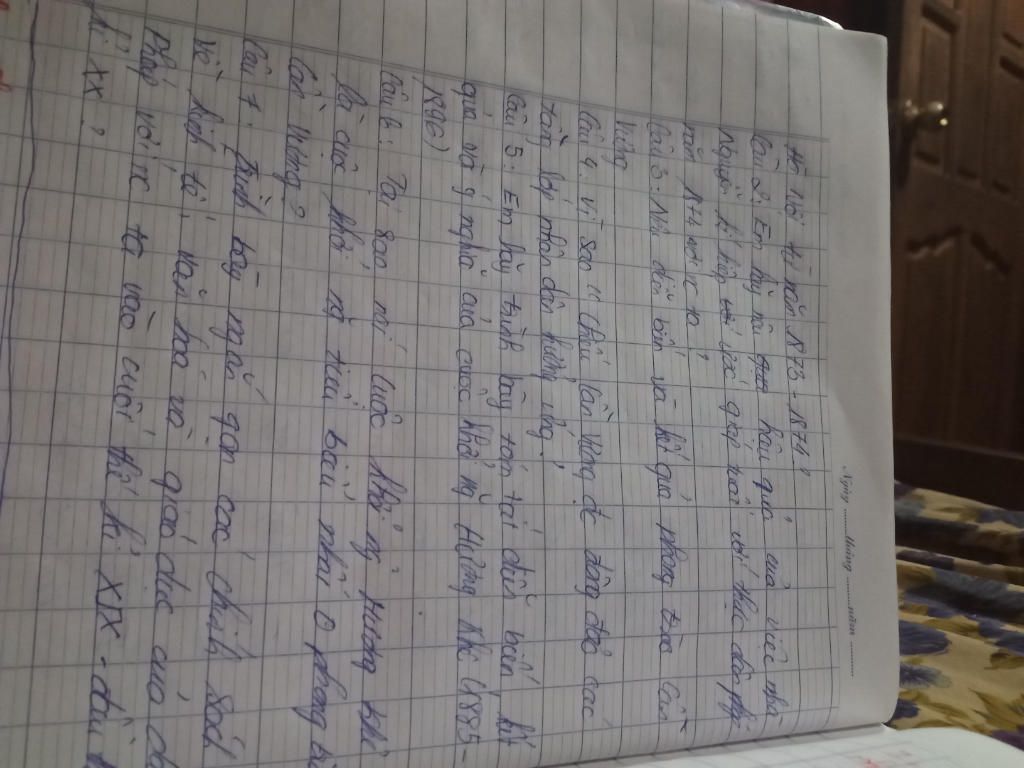 Hà Nội từ năm 1873 - 1874?
Câu 2. Em hãy nêu hậu quả của việc nhà
Nguyễn kí hiệp ước Giáp Tuất với thực dân Pháp
năm 1874 nước ta
Câu 3. Nêu diễn biến và kết quả phong trào Cần
Vương
Câu 4. Vì sao chiếu Cần Vương đc đông đảo các
tầng lớp nhân dân hưởng ứng?
Câu 5. Em hãy trình bày tóm tắt diễn biến kết
quả và ý nghĩa của cuộc khởi ng Hương Khê (1885-
1896)
Câu 6. Tại sao nói cuộc khởi ng Hương Khê
là cuộc khởi ng tiêu biểu nhất o phong
Cần Vương?
Câu 7. Trình bày ngắn gọn các chính sách
về kinh tế, văn hoá và giáo dục của
Pháp với nc ta vào cuối thế kỉ XIX - đầu
kỉ XX?
Ngày ......... tháng ......... năm .........